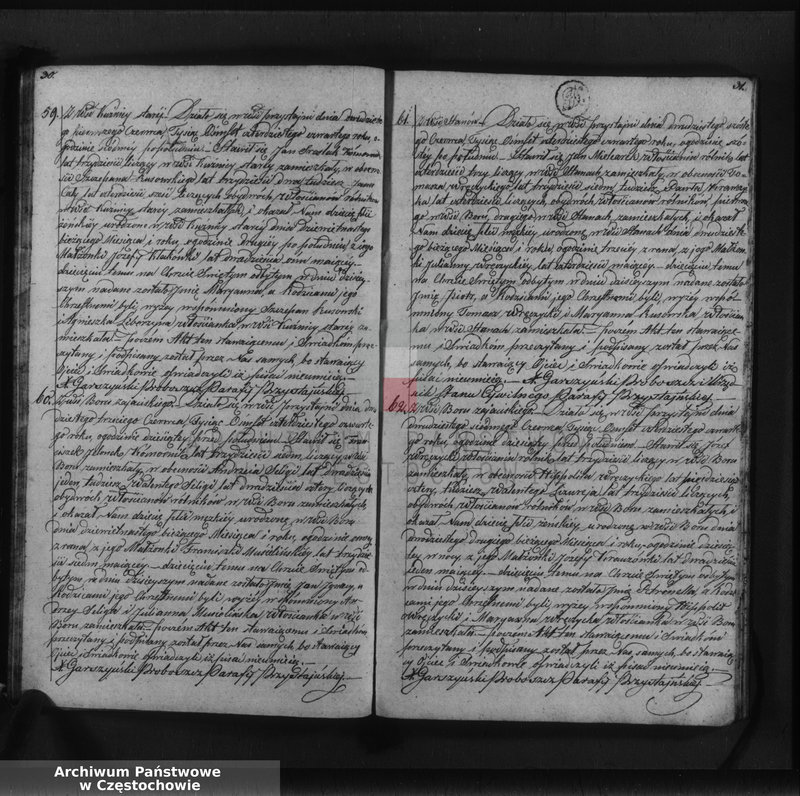 30.
59. Z Wsi Kuźnicy starej. Działo się w Wsi Przystajni dnia dwudzieste-
go pierwszego Czerwca Tysiąc Ośmset czterdziestego czwartego roku, o
godzinie po południu. Stawił się Jan
lat trzydzieści liczący w Wsi Kuźnicy starej zamieszkały, w obecno-
ści Szczepana Kusowskiego lat trzydzieści dwa, tudzież Jana
lat czterdzieści sześć liczących obydwóch, Włościanów rolników
w Wsi Kuźnicy starej zamieszkałych, i okazał Nam dziecię płci
żeńskiej urodzone w Wsi Kuźnicy starej dnia Dziewiętnastego
bieżącego Miesiąca i roku, o godzinie drugiej po południu z jego
Małżonki Józefy lat dwadzieścia mającej.
dziecięciu temu na Chrzcie Świętym odbytym w dniu dzisiej-
szym nadane zostało Imię Maryanna, a Rodzicami jego
Chrzestnemi byli, wyżej wspomniony Szczepan Kusowski
i Agnieszka Włościanka w Wsi Kuźnicy starej za-
mieszkała. poczem Akt ten stawającemu i Świadkom prze-
czytany i podpisany został przez Nas samych, bo stawający
Ojciec i Świadkowie oświadczyli iż pisać nieumieją.
X. Garszyński Proboszcz Parafij Przystajńskiej.
60. Z Wsi Boru zajacińskiego. Działo się w Wsi Przystajni dnia dwu-
dziestego trzeciego Czerwca Tysiąc Ośmset czterdziestego czwarte-
go roku, o godzinie dziesiątej przed południem. Stawił się Fran-
ciszek Komornik lat trzydzieści siedm liczący w Wsi
Boru zamieszkały, w obecności Andrzeja Seligi lat
jeden, tudzież Walentego Seligi lat dwadzieścia cztery liczących
obydwóch, Włościanów rolników w Wsi Boru zamieszkałych
i okazał Nam dziecię płci męzkiej urodzone w Wsi Boru
dnia dziewiętnastego bieżącego Miesiąca i roku, o godzinie
z rana, z jego Małżonki Franciszki Musielińskiej lat trzydzie-
ści siedm mającej. dziecięciu temu na Chrzcie Świętym od-
bytym w dniu dzisiejszym nadane zostało Imię Jan, a
Rodzicami jego Chrzestnemi byli, wyżej wspomniony An-
drzej Seliga i Zuzanna Musielińska Włościanka w Wsi
Boru zamieszkała. poczem Akt ten stawającemu i Świadkom
przeczytany i podpisany został przez Nas samych bo stawający
Ojciec i Świadkowie oświadczyli iż pisać nieumieją.
X. Garszyński Proboszcz Parafij Przystajńskiej.
31.
61. Z Wsi Stanów. Działo się w Wsi Przystajni dnia dwudziestego szóste-
go Czerwca Tysiąc Ośmset czterdziestego czwartego roku, o godzinie
po południu. Stawił się Jan Włościanin rolnik lat
czterdzieści trzy liczący w Wsi Stanach zamieszkały, w obecności To-
masza Wręczyckiego lat trzydzieści siedm, tudzież Pawła
lat czterdzieści liczących, obydwóch Włościanów rolników, pierwsze-
go w Wsi Boru, drugiego w Wsi Stanach zamieszkałych i okazał
Nam dziecię płci męzkiej, urodzone w Wsi Stanach dnia dwudzieste-
go bieżącego Miesiąca i roku, o godzinie trzeciej z rana, z jego Małżon-
ki Julianny Wręczyckiej lat czterdzieści mającej. dziecięciu temu
na Chrzcie Świętym odbytym w dniu dzisiejszym nadane zostało
Imię Piotr, a Rodzicami jego Chrzestnemi byli, wyżej wspo-
mniony Tomasz Wręczycki i Maryanna Kusowska Włościan-
ka w Wsi Stanach zamieszkała. poczem Akt ten stawającem-
u i Świadkom przeczytany i podpisany został przez Nas
samych, bo stawający Ojciec i Świadkowie oświadczyli iż
pisać nieumieją. X. Garszyński Proboszcz Urzęd-
nik Stanu Cywilnego Parafij Przystajńskiej.
62. Z Wsi Boru zajacińskiego. Działo się w Wsi Przystajni dnia
dwudziestego siódmego Czerwca Tysiąc Ośmset czterdziestego czwarte-
go roku, o godzinie dziesiątej przed południem. Stawił się Józef
Wręczycki Włościanin rolnik lat trzydzieści liczący w Wsi Boru
zamieszkały, w obecności Hippolita Wręczyckiego lat pięćdziesiąt
cztery, tudzież Walentego lat trzydzieści liczących,
obydwóch Włościanów rolników w Wsi Boru zamieszkałych i
okazał Nam dziecię płci żeńskiej, urodzone w Wsi Boru dnia
dwudziestego drugiego bieżącego Miesiąca i roku, o godzinie dziesią-
tej w nocy z jego Małżonki Józefy lat dwadzieścia
jeden mającej. dziecięciu temu na Chrzcie Świętym odbytym
w dniu dzisiejszym, nadane zostało Imię Petronella, a Rodzi-
cami jego Chrzestnemi byli wyżej wspomniony Hippolit
Wręczycki i Maryanna Wręczycka Włościanka w Wsi Boru
zamieszkała. poczem Akt ten stawającemu i Świadkom
przeczytany i podpisany został przez Nas samych, bo stawają-
cy Ojciec i Świadkowie oświadczyli iż pisać nieumieją.
X. Garszyński Proboszcz Parafij Przystajńskiej.
Archiwum Państwowe
w Częstochowie